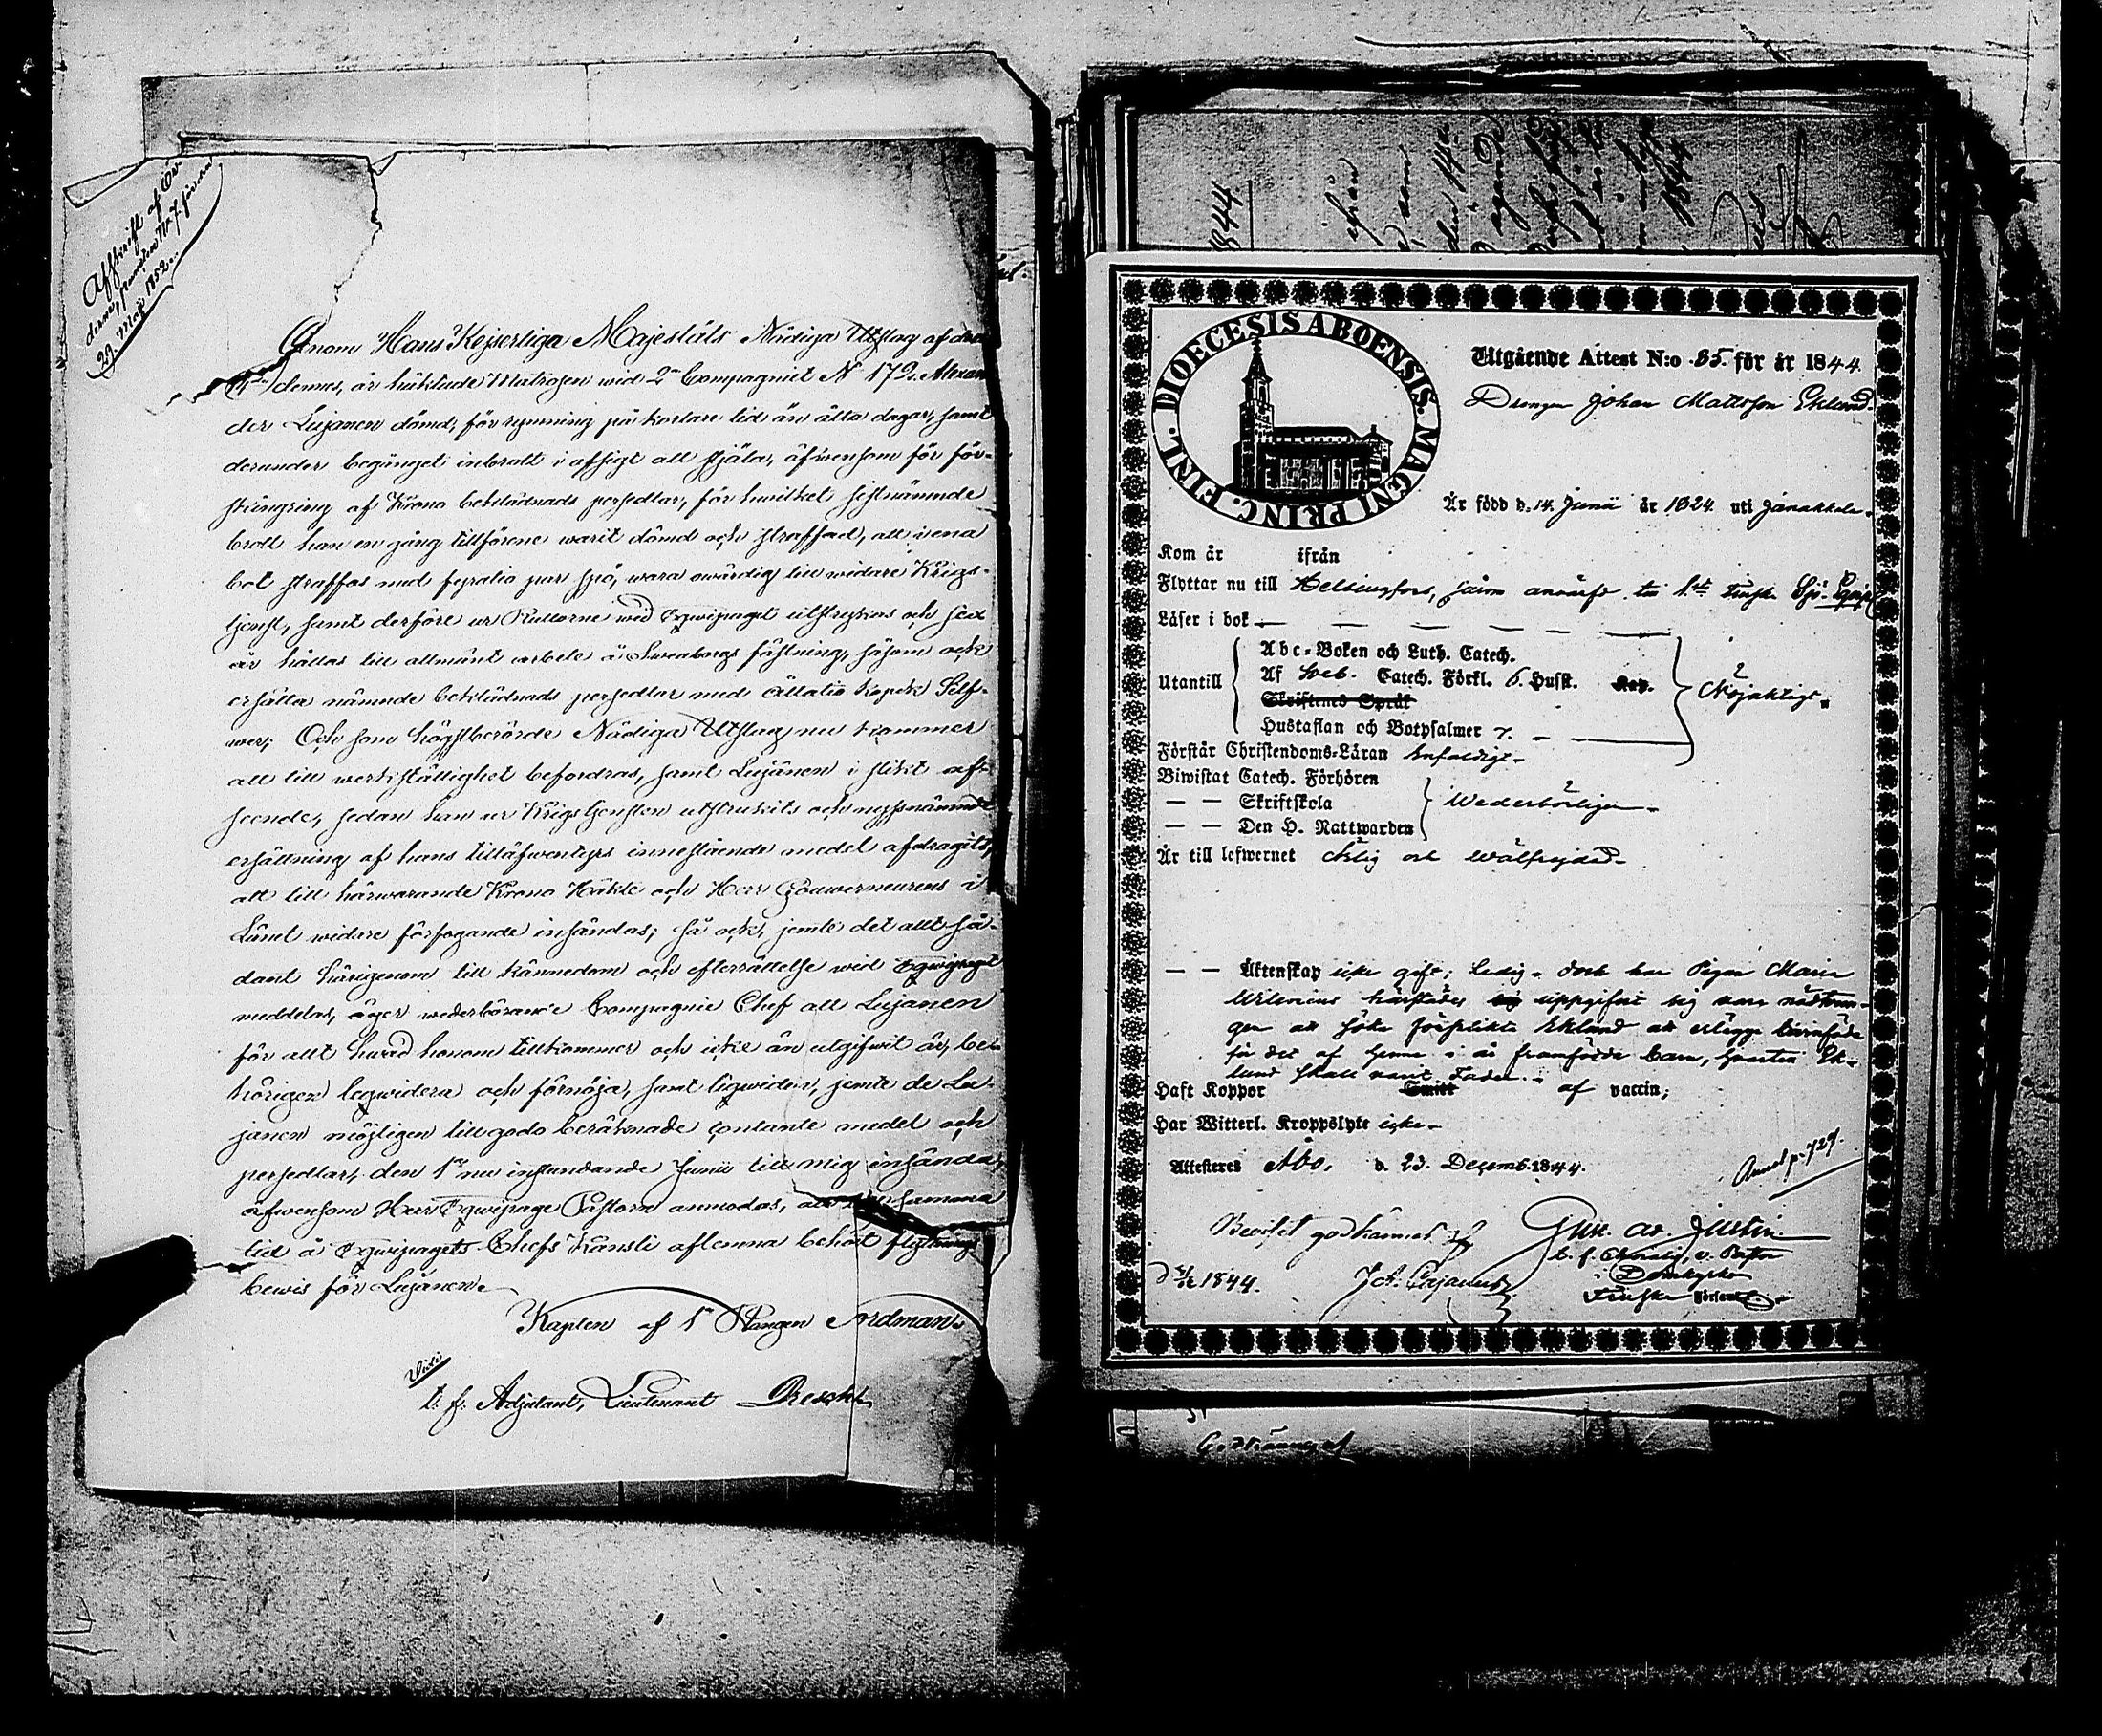 Afskrift af Or
dernes, ... N:o 7. för den
29. Maji 1852.
Genom Hans Kejserliga Majestäts Nådiga Utslag af den
dennes, är häktade Matrosen wid 2:a Compagniet N:o 172. Alexan
der Lujanen dömd, för rymning på kortare tid än åtta dagar, samt
derunder begånget inbrott i afsigt att stjäla, äfwensom för för-
skingring af Krono beklädnads persedlar, för hwilket sistnämnde
brott han en gång tillförene warit dömd och straffad, att i ena
bot straffas med fyratio par spö, wara owärdig till widare Krigs-
tjenst, samt derföre ur Rullorne wid Equipaget utstrykas och sex
år hållas till allmänt arbete å Sweaborgs fästning, såsom ock
ersätta nämnde beklädnads persedlar med åttatio kopek Silf-
wer; Och som högstberörde Nådiga Utslag nu kommer
att till werkställighet befordras, samt Lujanen i slikt af-
seende, sedan han ur Krigstjensten utstrukits och nyssnämnde
ersättning af hans tilläfwentyrs innestående medel afdragits,
att till härwarande Krono Häkte och Herr Gouverneurens i
Länet widare förfogande insändas; så ock, jemte det allt så-
dant härigenom till kännedom och efterrättelse wid Equipaget
meddelas, äger wederbörande Compagnie Chef att Lujanen
för allt hwad honom tillkommer och icke än utgifwit är, be-
hörigen liqwidera och förnöja, samt liqwiden, jemte de Lu-
janen möjligen till godo beräknade contante medel och
persedlar, den 1:a nu instundande Junii till mig insända,
äfwensom Herr Equipage Pastorn anmodas, att samma
tid å Equipagets Chefs Kansli aflemna behörit flyttnings
bewis för Lujanen.
Kapten af 1:a Rangen Nordman.
Vidi
t. f. Adjutant, Lieutenant
844.
ifrån
den
1844
DIOECESIS ABOENSIS. MAGNI PRINC. FINL.
Utgående Attest N:o 85. för år 1844.
Drengen Johan Mattsson Eklund.
Är född d. 14 Junii år 1824 uti Janakkala.
Kom år ifrån
Flyttar nu till Helsingfors, såsom anwärfd till 1:sta Finska Sjö-Equip
Läser i bok — — — — —
Utantill
Abc-Boken och Luth. Catech.
Af Sveb. Catech. Förkl. 6. Hufst. Kap.
Skriftenes Språk
Nöjaktigt.
Hustaflan och Botpsalmer 7. —
Förstår Christendoms-Läran enfaldigt.
Biwistat Catech. Förhören
— — Skriftskola
Wederbörligen.
— — Den H. Nattwarden
Är till lefwernet ärlig och wälfrejdad.
— — Äktenskap icke gift; Ledig. dock har Pigan Maria
härstädes uppgifvit sig vara nödtvun-
gen att söka förplikta Eklund att erlägga barnföda
för det af henne i år framfödda barn, hvartill Ek-
lund skall varit Fader.
Haft Koppor Smitt af vaccin;
Har Witterl. Kroppslyte icke.
Attesteras Åbo, d. 23. Decemb. 1844.
Annot p. 729.
Beviset godkännes af
Gust. Ad. Justin.
t. f. v. Pastor
i Domkyrko
Finska Församl.
1844.
J. A. Cajanus
Godkännes af